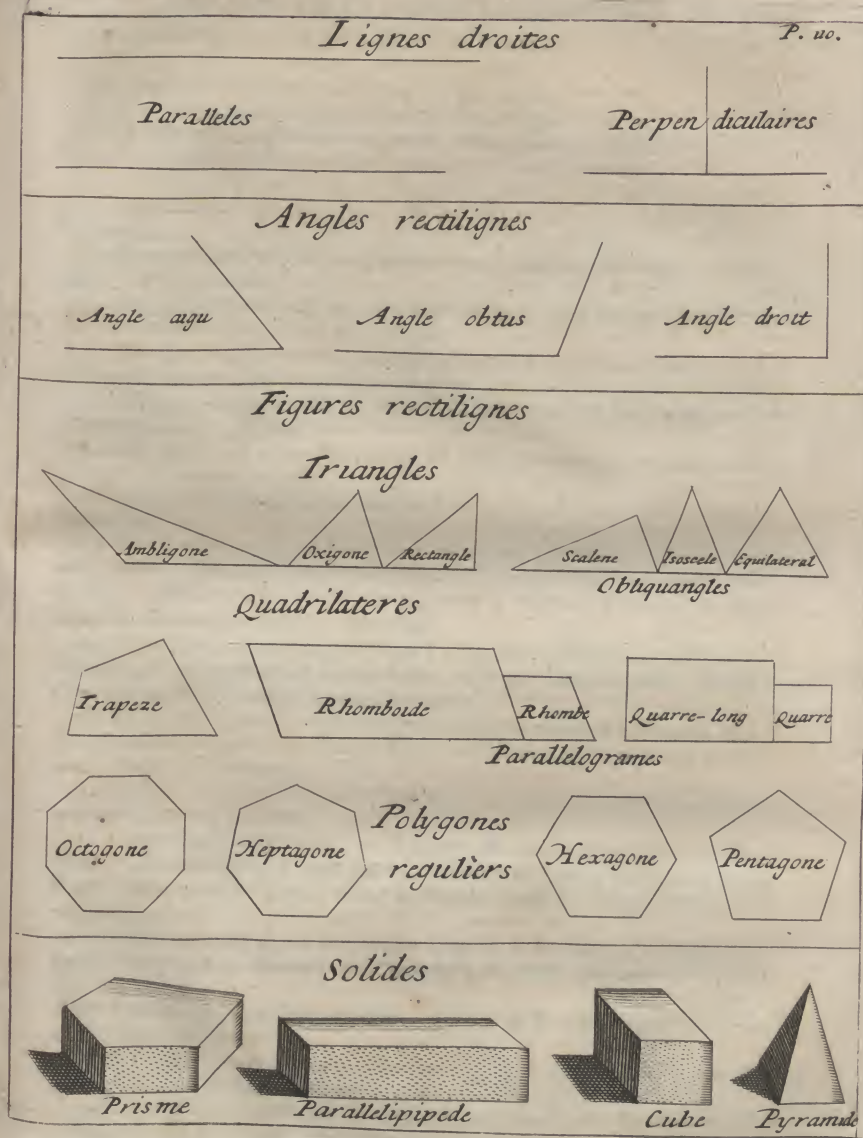 Lignes droites
P. 110.
Paralleles
Perpendiculaires
Angles rectilignes
Angle aigu
Angle obtus
Angle droit
Figures rectilignes
Triangles
Ambligone
Oxigone
Rectangle
Scalene
Isoscele
Equilateral
Obliquangles
Quadrilateres
Trapeze
Rhomboide
Rhombe
Quarre-long
Quarre
Parallelogrames
Octogone
Heptagone
Polygones
reguliers
Hexagone
Pentagone
Solides
Prisme
Parallelipipede
Cube
Pyramide